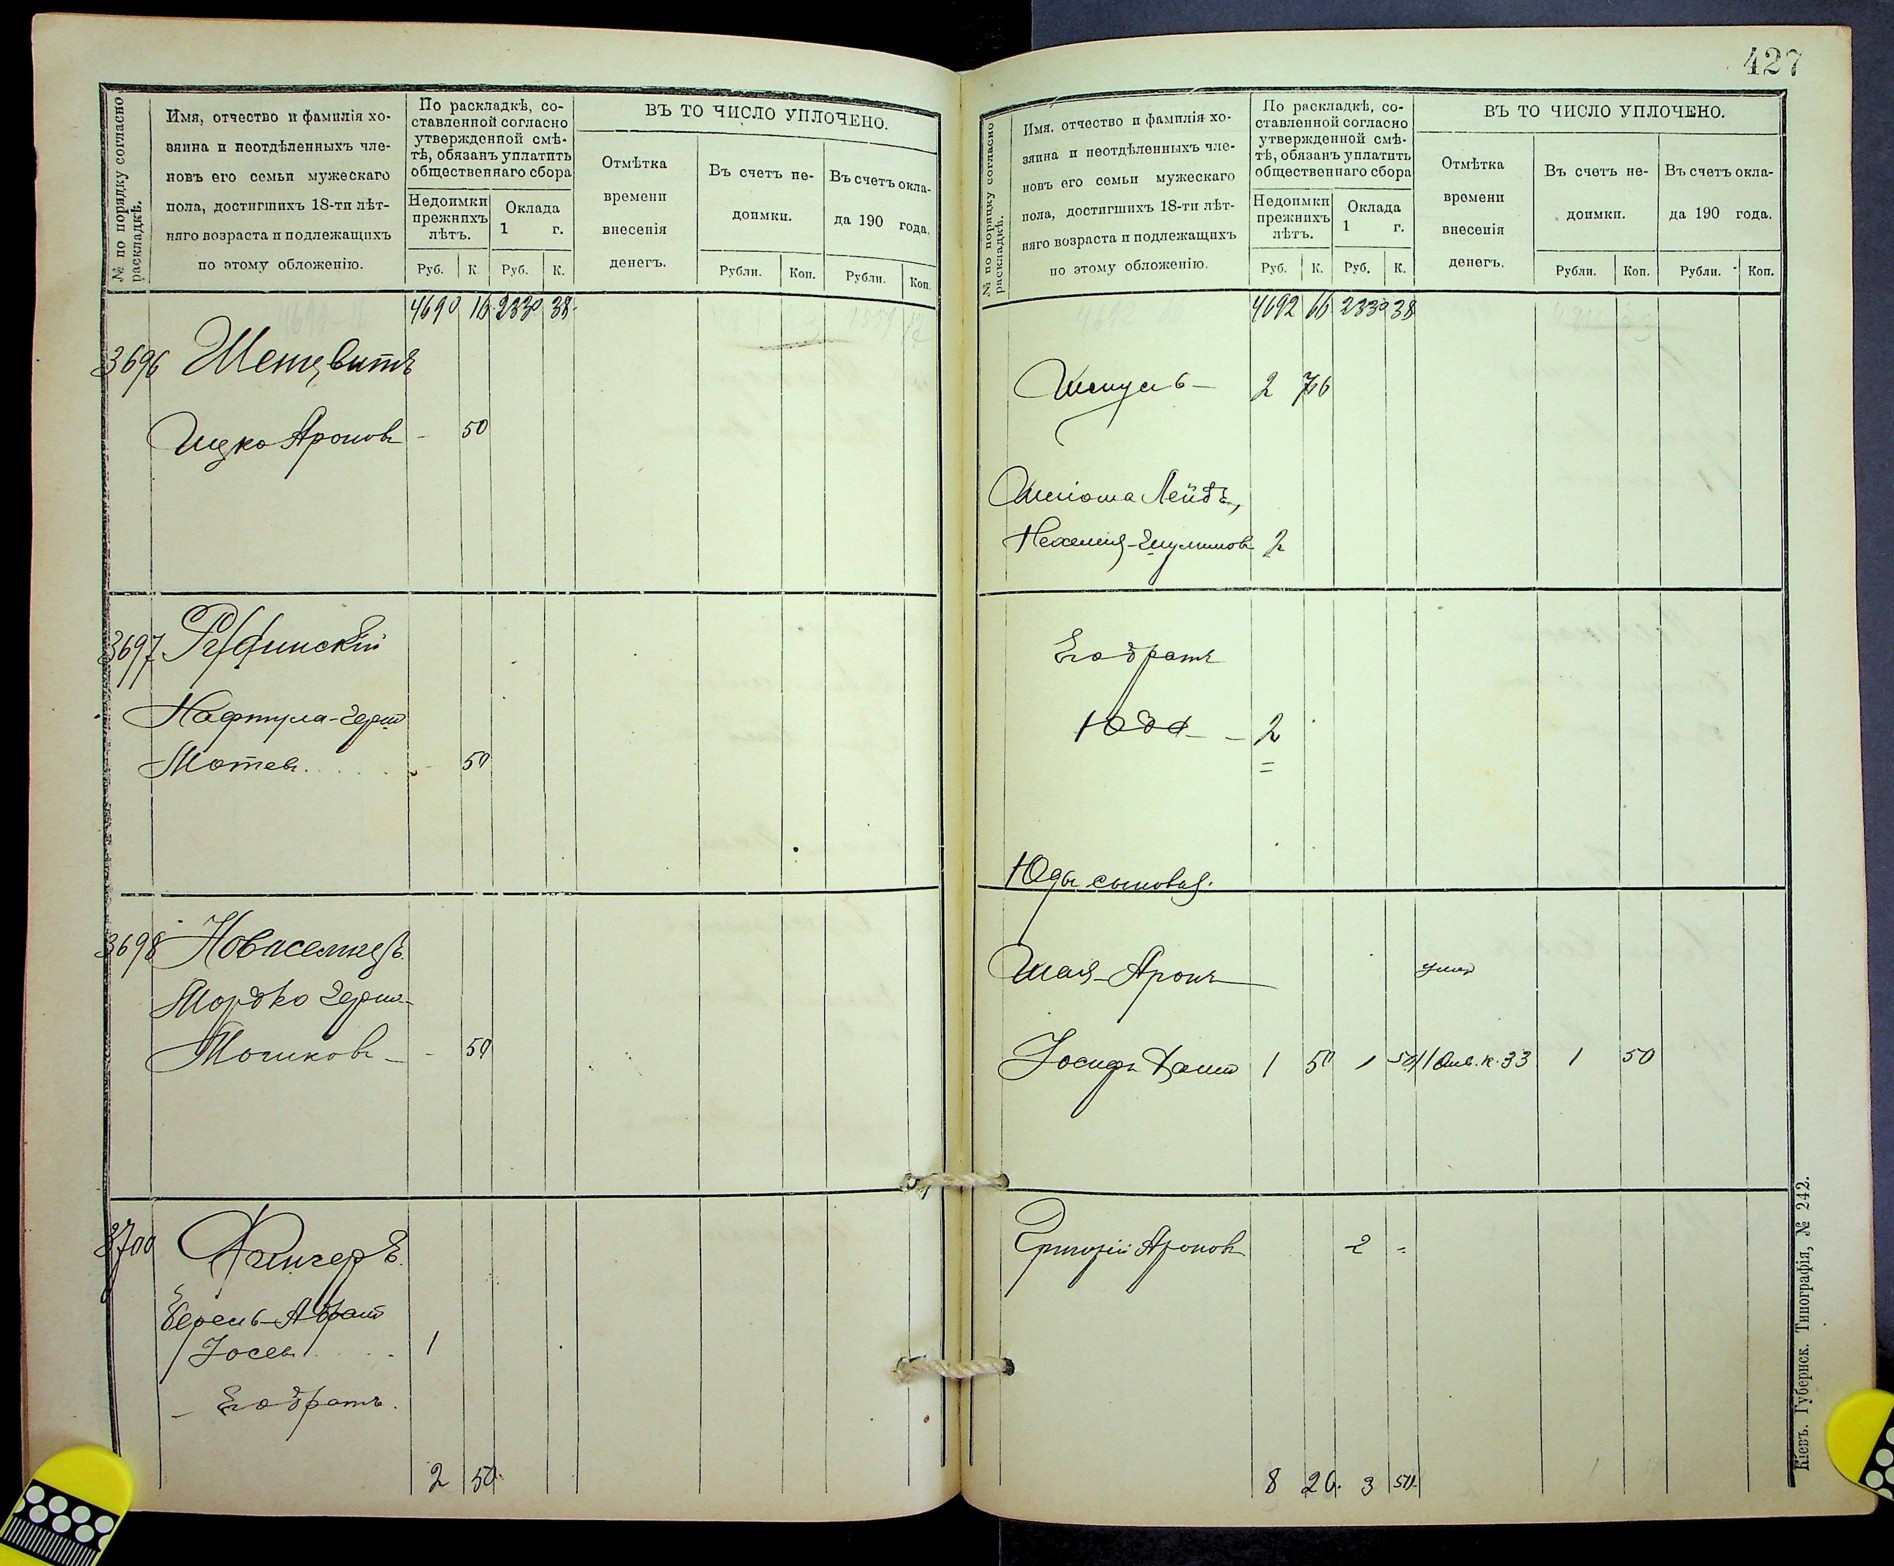 427
№ по порядку согласно раскладкѣ.
Имя, отчество и фамилія хо-
зяина и неотдѣленныхъ чле-
новъ его семьи мужескаго
пола, достигшихъ 18-ти лѣт-
няго возраста и подлежащихъ
по этому обложенію.
По раскладкѣ, со-
ставленной согласно
утвержденной смѣ-
тѣ, обязанъ уплатить
общественнаго сбора
Недоимки прежнихъ лѣтъ.
Оклада 1 г.
Руб. К. Руб. К.
ВЪ ТО ЧИСЛО УПЛОЧЕНО.
Отмѣтка времени внесенія денегъ.
Въ счетъ не-
доимки.
Въ счетъ окла-
да 190 года.
Рубли. Коп. Рубли. Коп.
4690 16 2330 38
3696
Ицко Аронов - 50
3697
Нафтула-Герш
Мотев - 50
3698 Новоселец
Мордко Герш-
Мошков - - 50
3700
Берель-Абрам
Іосев 1
- Его братъ.
2 50
№ по порядку согласно раскладкѣ.
Имя, отчество и фамилія хо-
зяина и неотдѣленныхъ чле-
новъ его семьи мужескаго
пола, достигшихъ 18-ти лѣт-
няго возраста и подлежащихъ
по этому обложенію.
По раскладкѣ, со-
ставленной согласно
утвержденной смѣ-
тѣ, обязанъ уплатить
общественнаго сбора
Недоимки прежнихъ лѣтъ.
Оклада 1 г.
Руб. К. Руб. К.
ВЪ ТО ЧИСЛО УПЛОЧЕНО.
Отмѣтка времени внесенія денегъ.
Въ счетъ не-
доимки.
Въ счетъ окла-
да 190 года.
Рубли. Коп. Рубли. Коп.
4692 66 2330 38
2 76
Лейбъ,
Нехемія- 2
Его братъ
Юда - 2
Юды сыновья.
Шая-Аронъ умер
Іосифъ 1 50 1 50 11 Янв. к. 33 1 50
Григорій Аронов 2 =
8 26 3 50
Кіевъ. Губернск. Типографія, № 242.